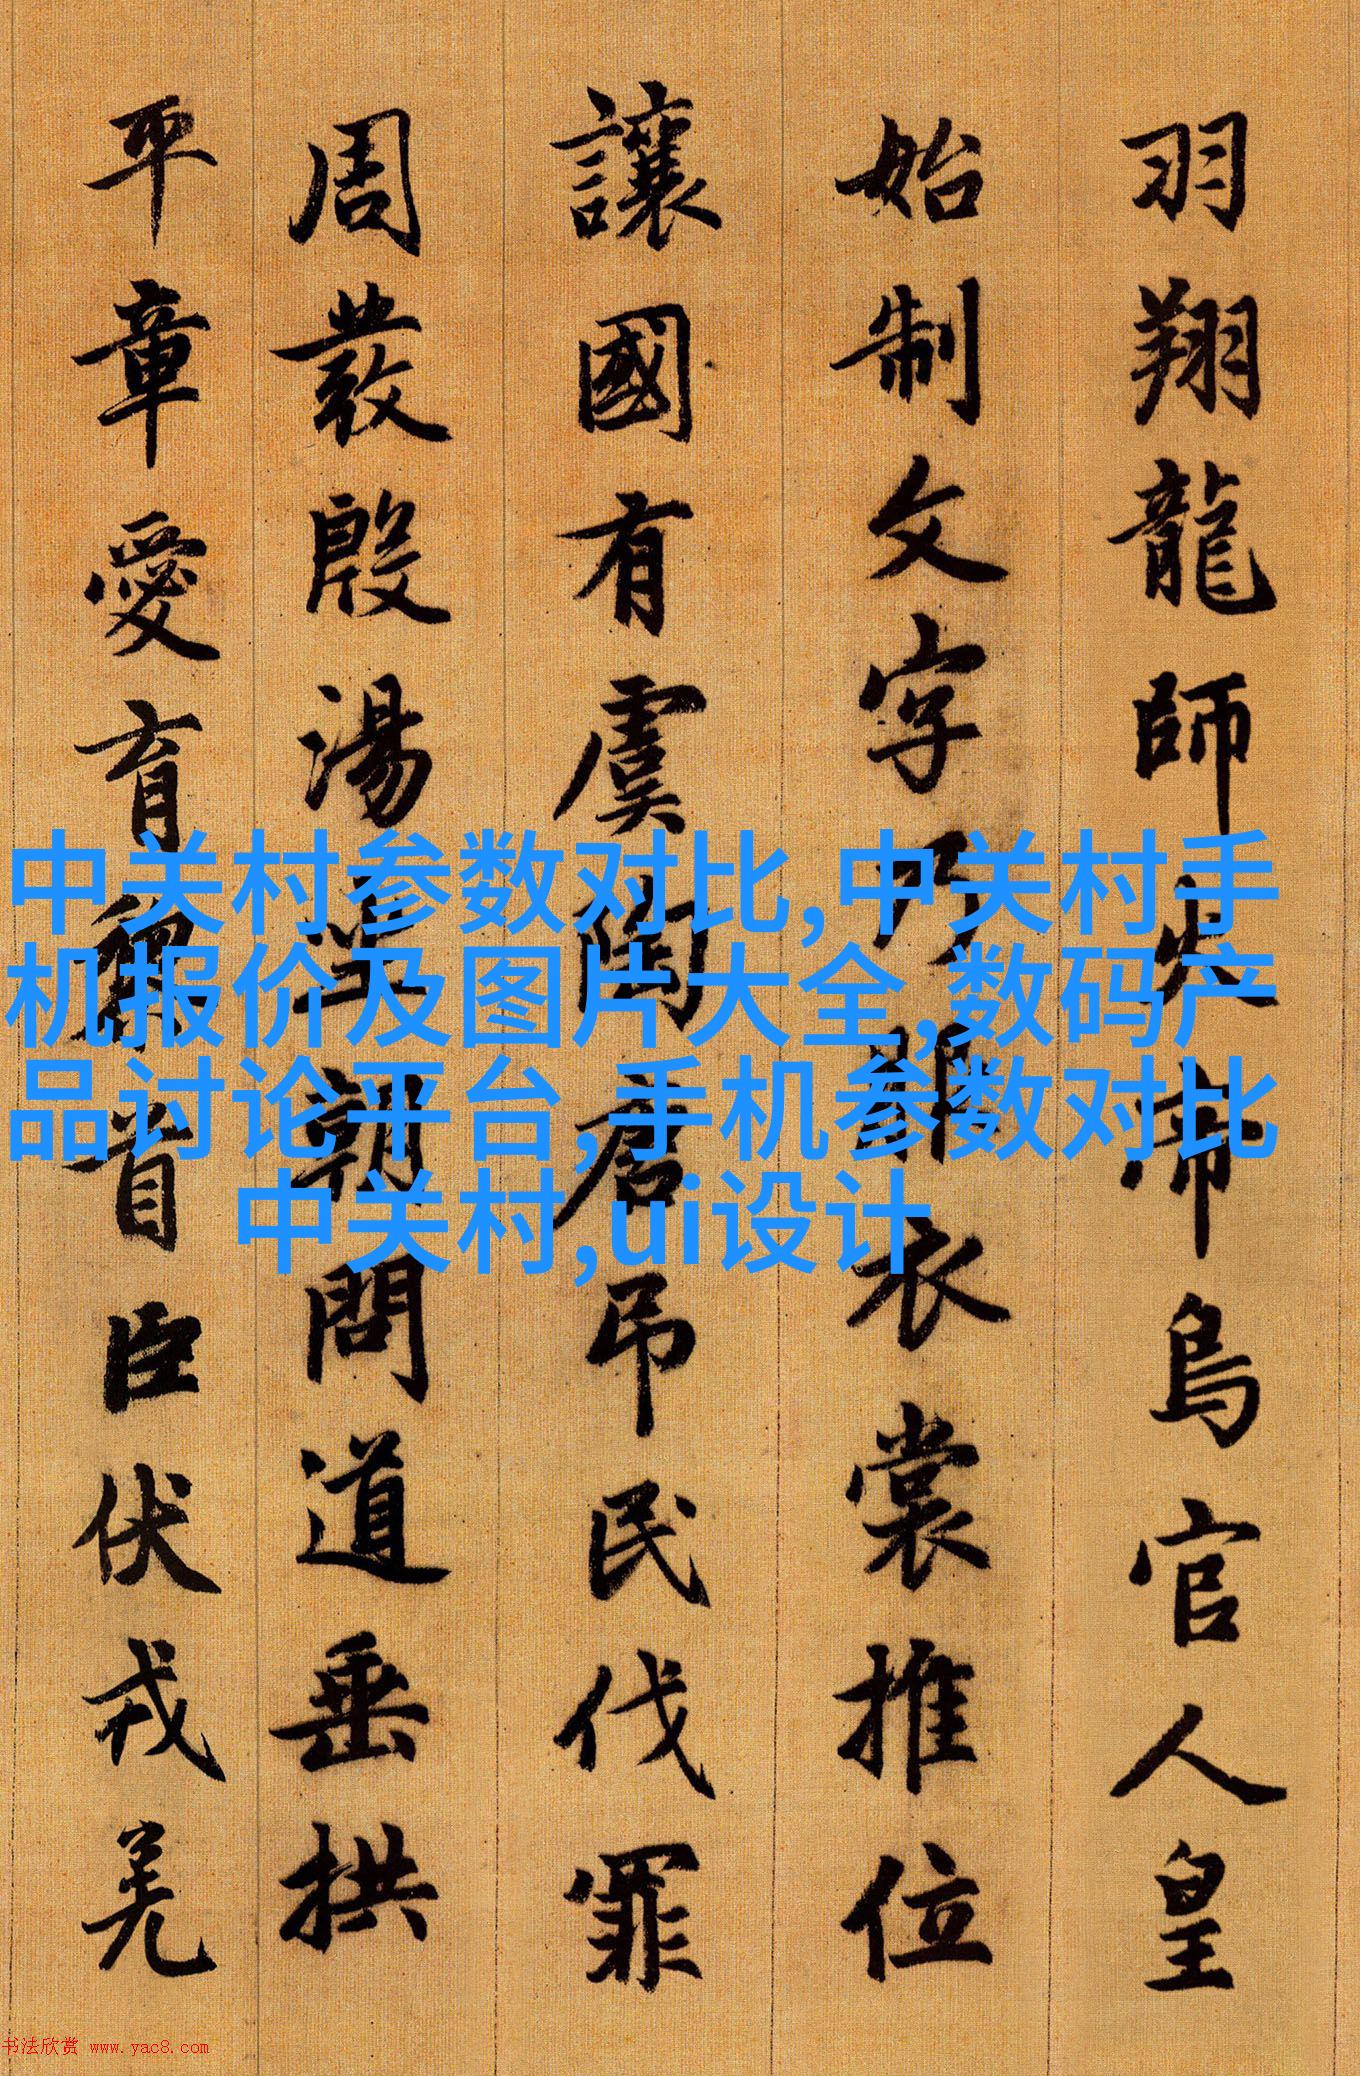 羽翔龍師火帝鳥官人皇
始制文字乃服衣裳推位
讓國有虞陶唐吊民伐罪
周發殷湯坐朝問道垂拱
平章愛育黎首臣伏戎羌
中关村参数对比,中关村手
机报价及图片大全,数码产
品讨论平台,手机参数对比
中关村,ui设计
书法欣赏 www.yac8.com